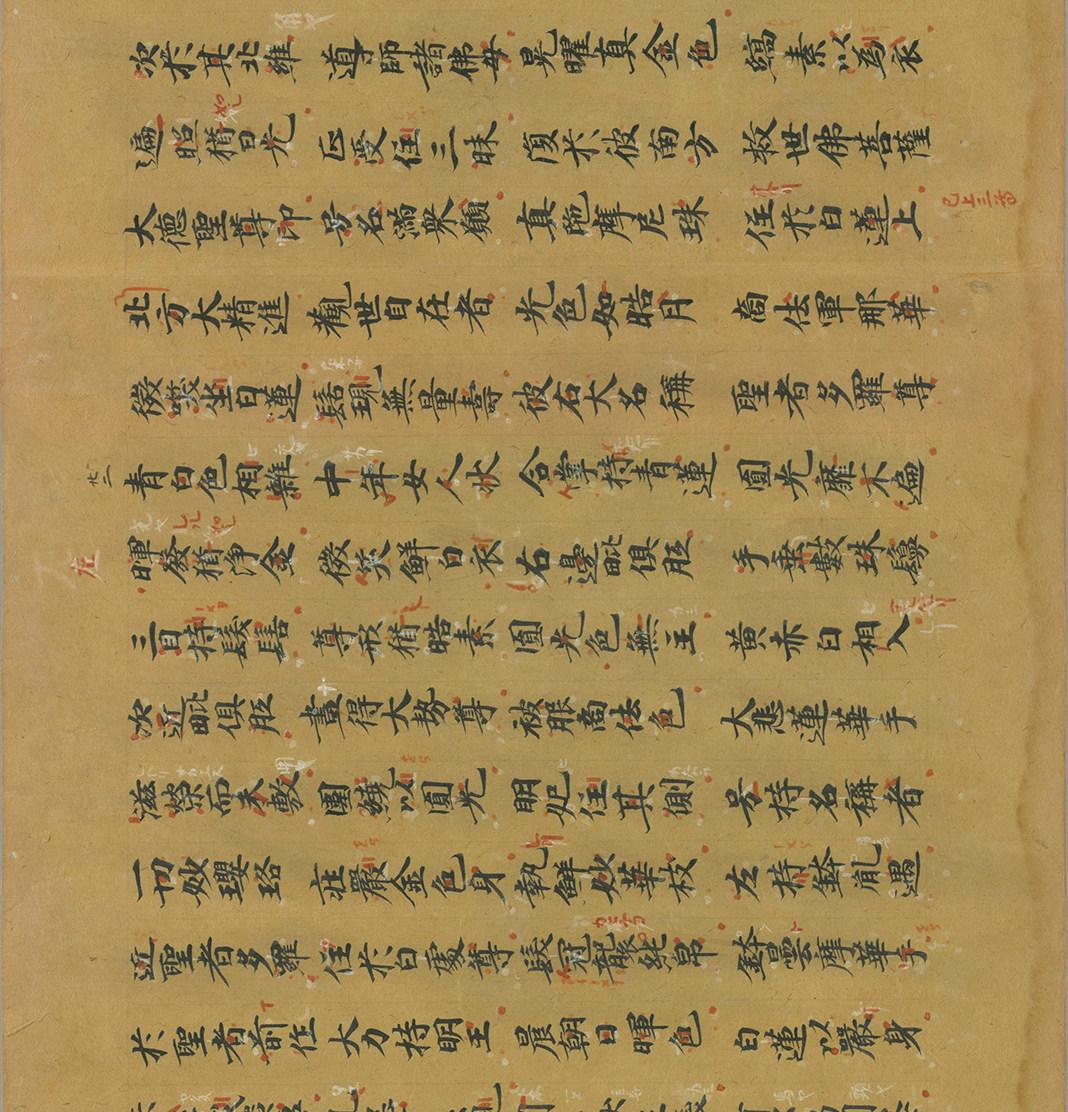 次於其北維 導師諸佛母 晃曜真金色 縞素以為衣
遍照猶日光 正受住三昧 復於彼南方 救世佛菩薩
大德聖尊印 号名滿衆願 真陁摩尼珠 住於白蓮上
已上三尊
北方大精進 觀世自在者 光色如皓月 商佉軍那華
微笑坐白蓮 髻現無量壽 彼右大名稱 聖者多羅尊
青白色相雜 中年女人狀 合掌持青蓮 圓光靡不遍
暉發猶淨金 微笑鮮白衣 右邊毗俱胝 手垂數珠鬘
左
三目持髮髻 尊形猶皓素 圓光色無主 黃赤白相入
次近毗俱胝 畫得大勢尊 被服商佉色 大悲蓮華手
滋榮而未敷 圍繞以圓光 明妃住其側 号持名稱者
一切妙瓔珞 莊嚴金色身 執鮮妙華枝 左持鉢胤遇
近聖者多羅 住於白處尊 髮冠襲純帛 鉢曇摩華手
於聖者前作 大力持明王 晨朝日暉色 白蓮以嚴身